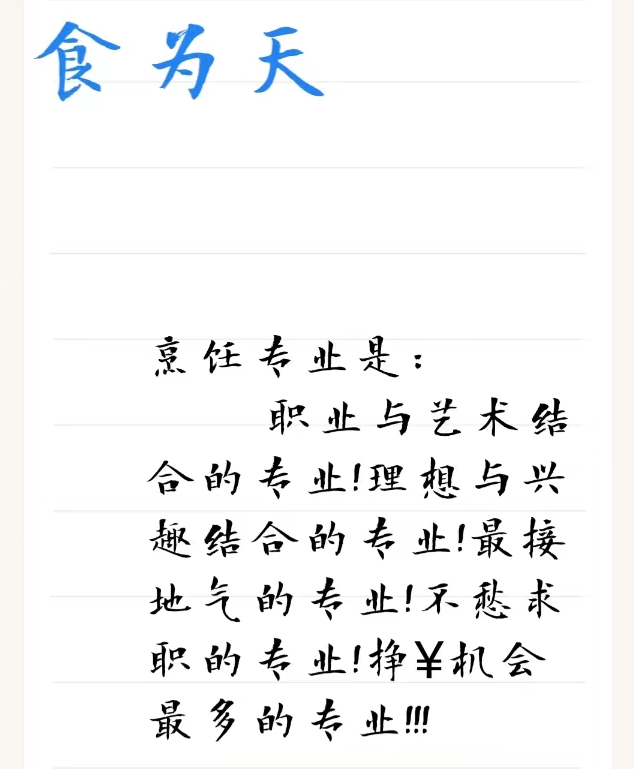 食为天
烹饪专业是：
职业与艺术结
合的专业!理想与兴
趣结合的专业!最接
地气的专业!不愁求
职的专业!挣¥机会
最多的专业!!!